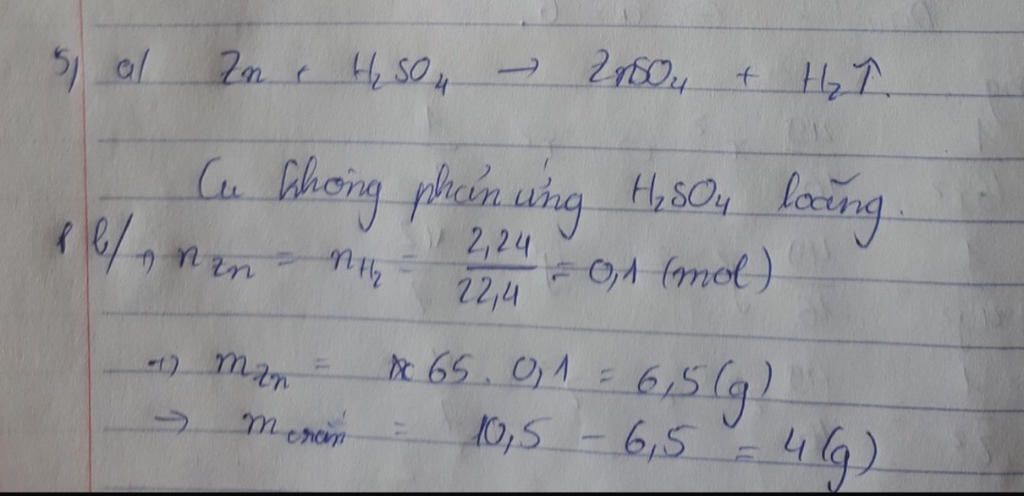 5) a/ Zn + H₂SO₄ → ZnSO₄ + H₂↑.
Cu không phản ứng H₂SO₄ loãng.
b/ → nZn = nH₂ = 2,24/22,4 = 0,1 (mol)
→ mZn = 65 . 0,1 = 6,5 (g)
→ m rắn = 10,5 - 6,5 = 4 (g)